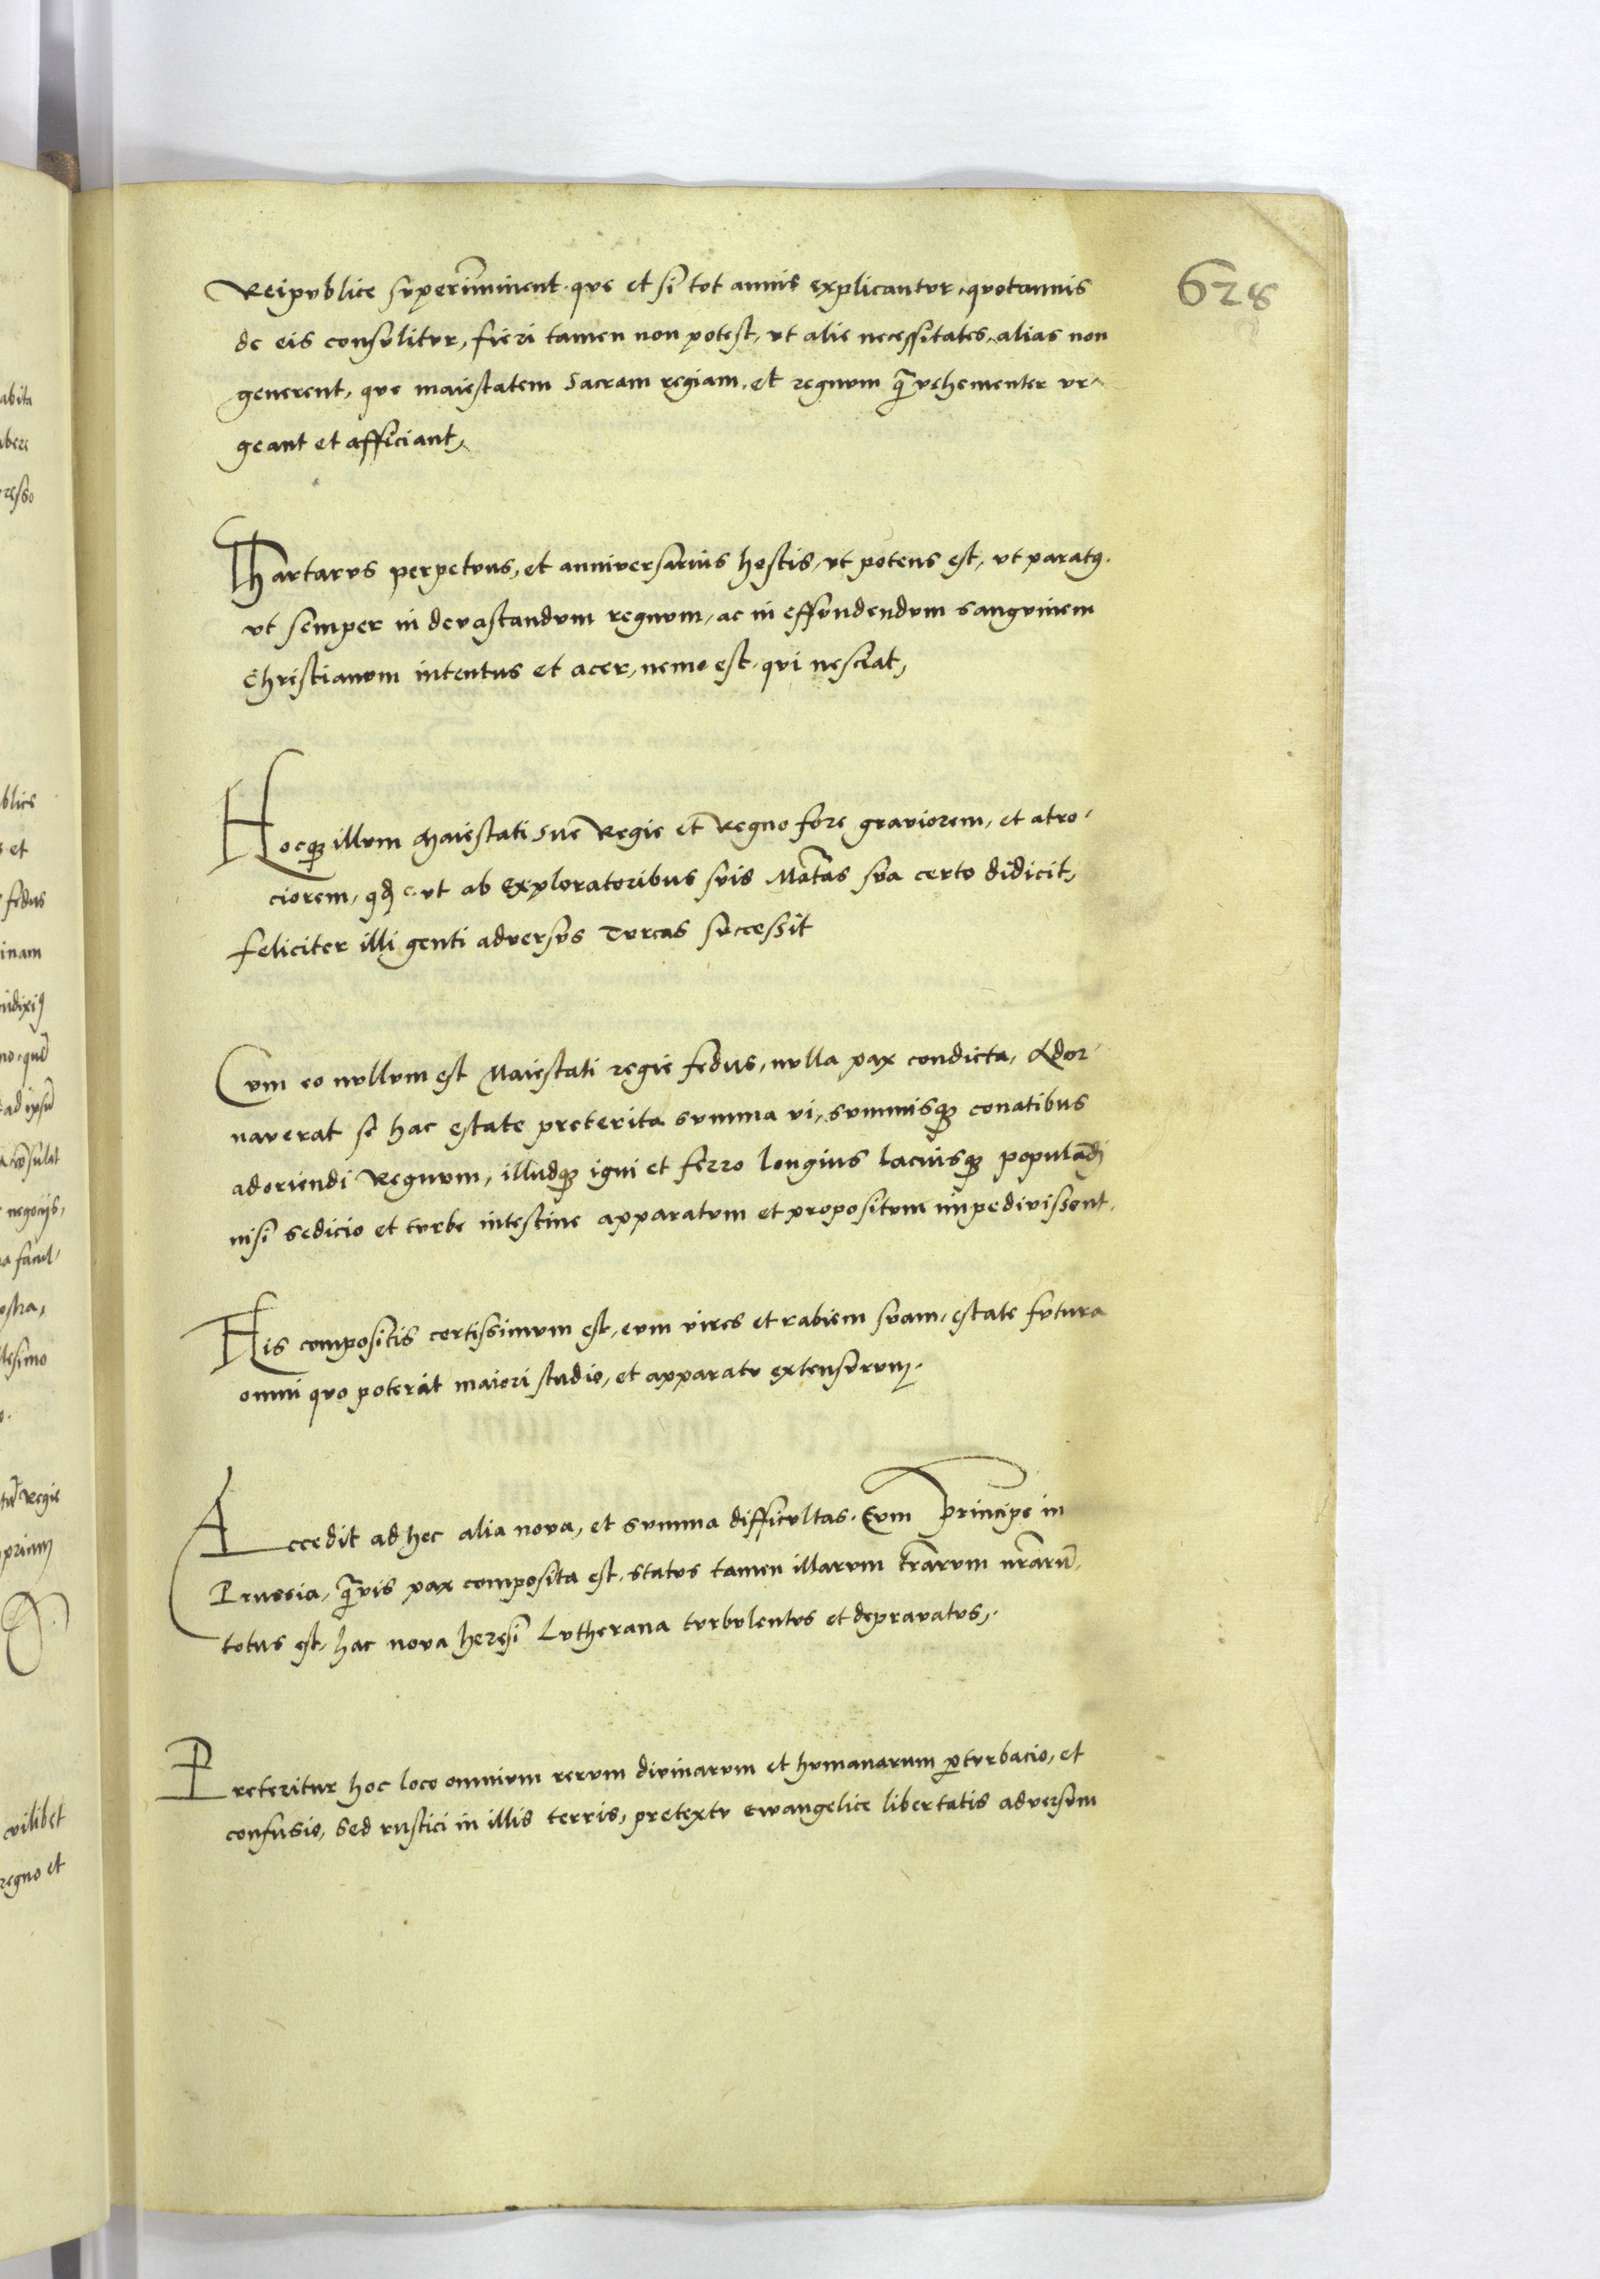 628
Reipvblice svperimminent. que et si tot annis explicantvr. qvotannis
de eis consvlitvr, fieri tamen non potest, vt alie necessitates, alias non
generent, que maiestatem Sacram regiam, et regnvm q̄ vehementer vr-
geant et afficiant,
Thartarvs perpetvus, et anniversarius hostis, vt potens est, vt paratus.
vt semper in devastandvm regnvm, ac in effvndendvm sangvinem
Christianvm intentus et acer, nemo est. qvi nesciat,
Hocq; illvm Maiestati sue Regie et Regno fore graviorem, et atro-
ciorem, qd vt ab Exploratoribus svis Mātas sva certo didicit,
feliciter illi genti adversvs Tvrcas svccessit
Cvm eo nvllvm est Maiestati regie fedus, nvlla pax condicta, Ador-
naverat se hac estate preterita svmma vi, svmmisq; conatibus
adoriendi Regnvm, illudq; igni et ferro longius laciusq; populādi
nisi sedicio et tvrbe intestine apparatvm et propositvm impedivissent.
His compositis certissimvm est, evm vires et rabiem svam, estate fvtvra
omni qvo poterit maiori studio, et apparatv extensvrvm.
Accedit ad hec alia nova, et svmma difficvltas. Cvm Principe in
Prussia, q̄vis pax composita est. statvs tamen illarvm tr̄arvm nr̄arū
totus est, hac nova heresi Lvtherana tvrbvlentvs et depravatvs,
Preteritur hoc loco omnivm rervm divinarvm et hvmanarum pertvrbacio, et
confusio, sed rustici in illis terris, pretextv ewangelice libertatis adversvm